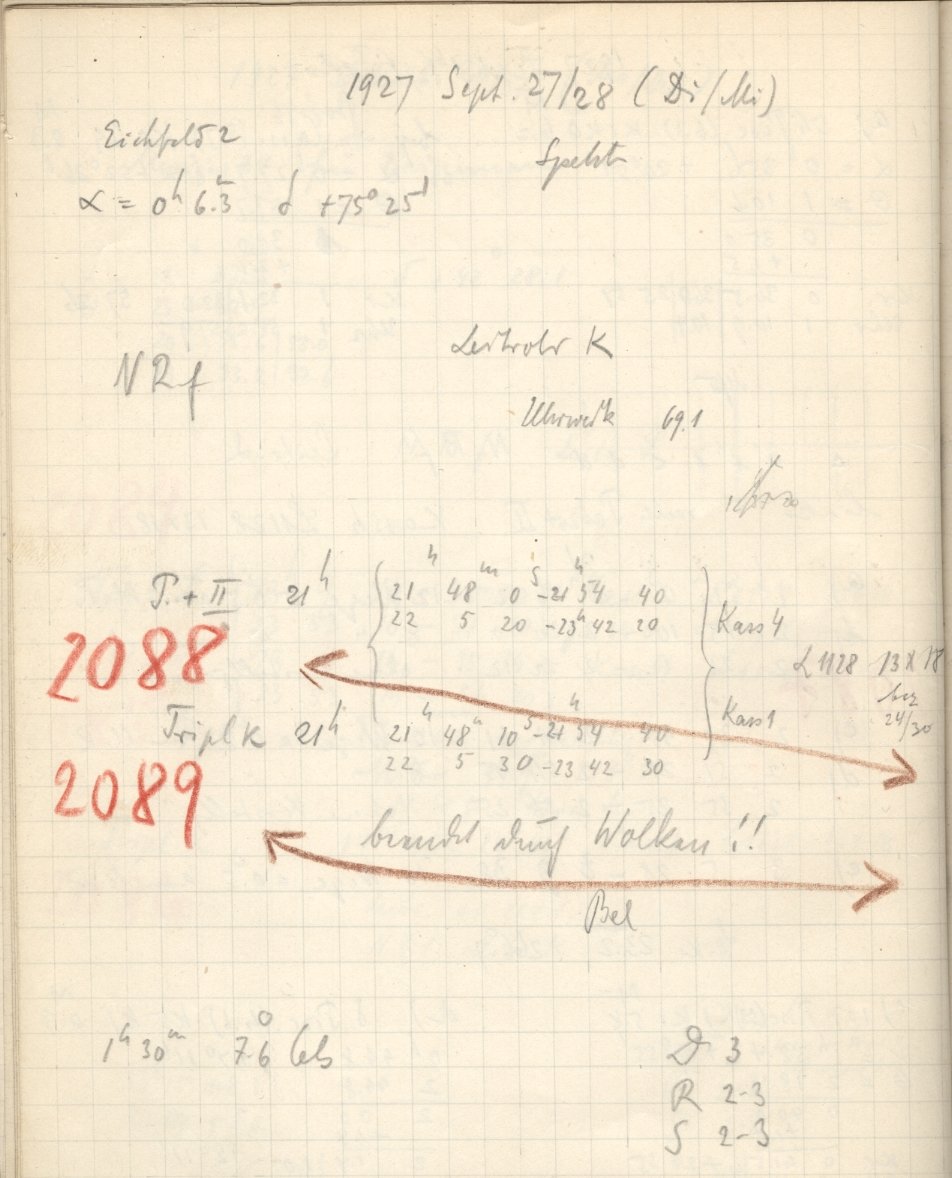 1927 Sept. 27/28 (Di/Mi)
Eichfeld 2
Spektr
α = 0h 6.m3 δ +75° 25'
Leitrohr K
NRf
Uhrwerk 69.1
T. + II 21h 21h 48m 0s -21h 54 40
22 5 20 -23h 42 20
Kass 4
2088
L 1128 13 X 18
bez
24/30
Tripl K 21h 21h 48m 10s -21h 54 40
22 5 30 -23 42 30
Kass 1
2089
beendet durch Wolken !!
Bel
1h 30m 7.6° Cels
D 3
R 2-3
S 2-3